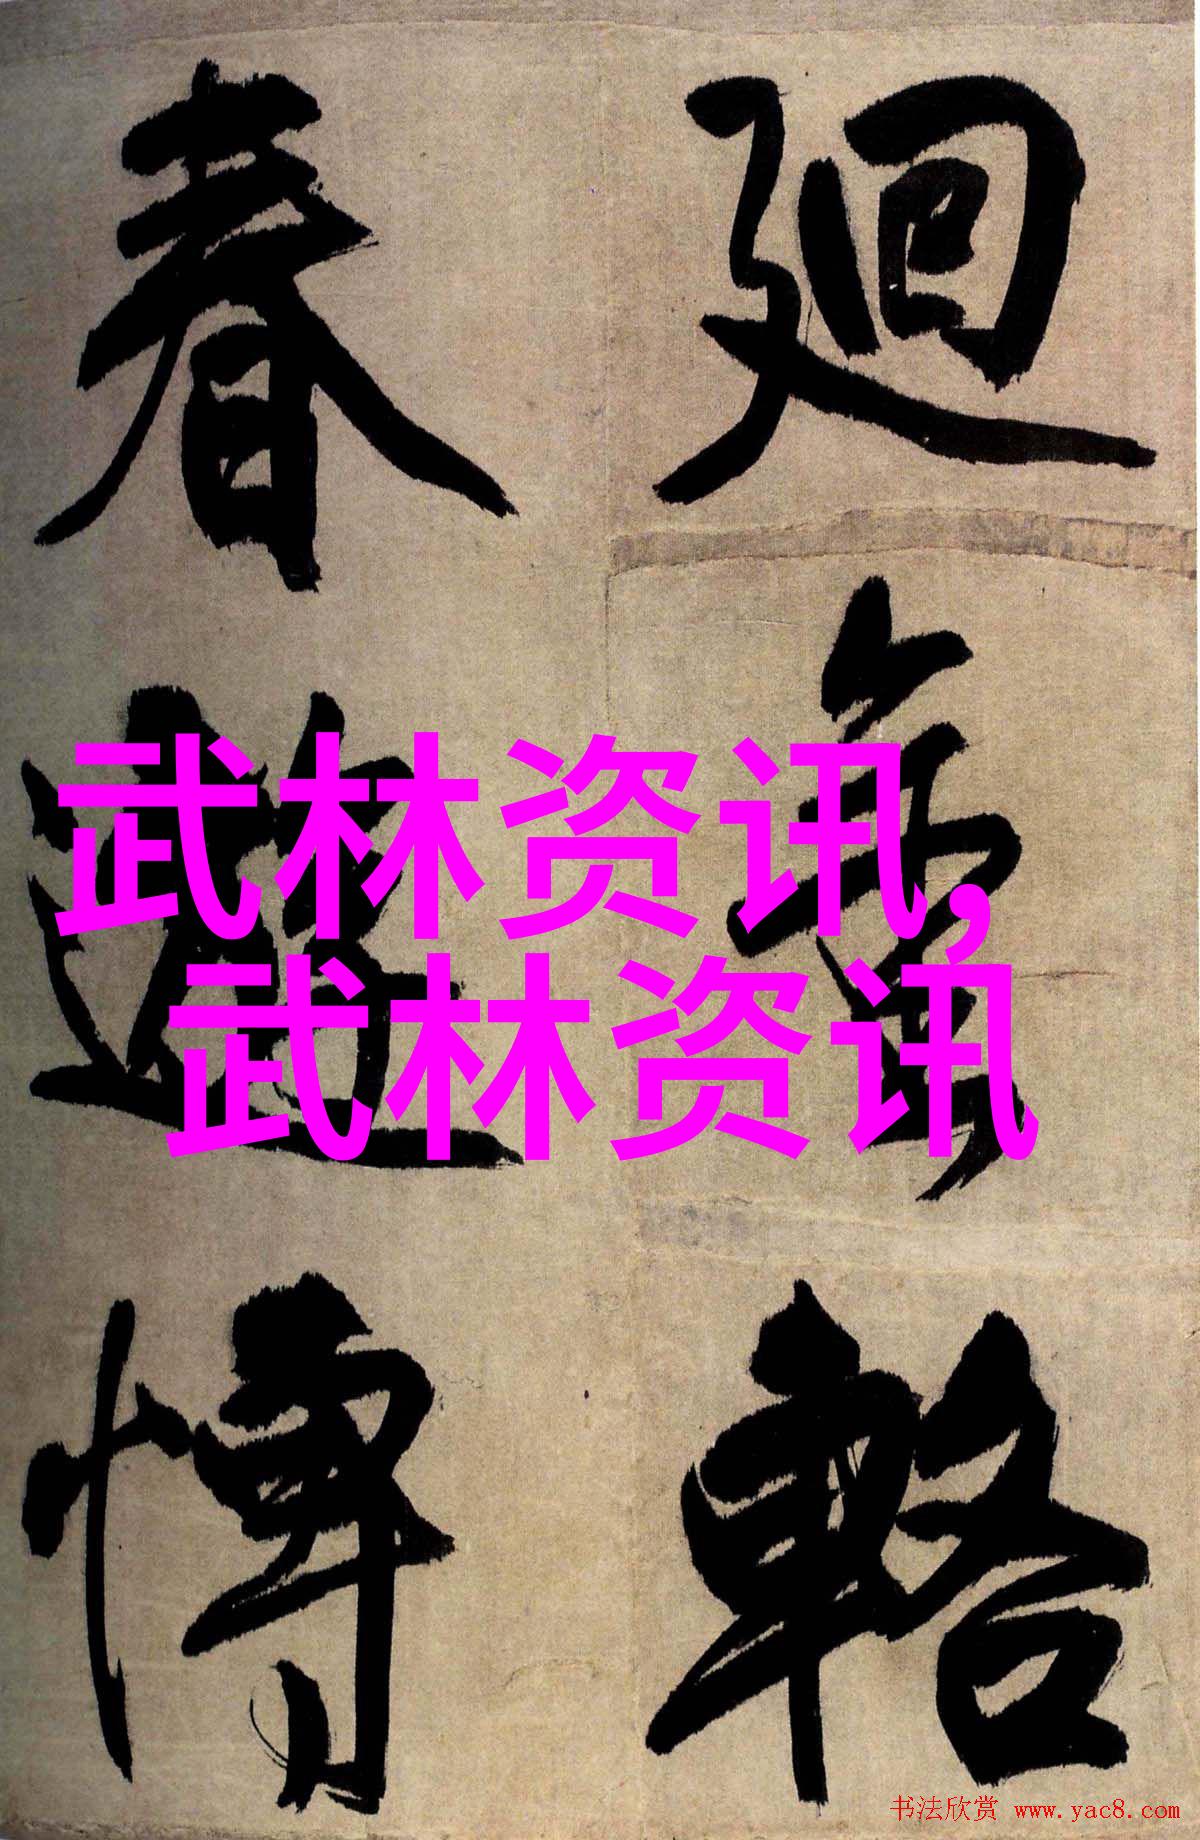 廻輅
春遊愽
武林资讯,
武林资讯
书法欣赏 www.yac8.com